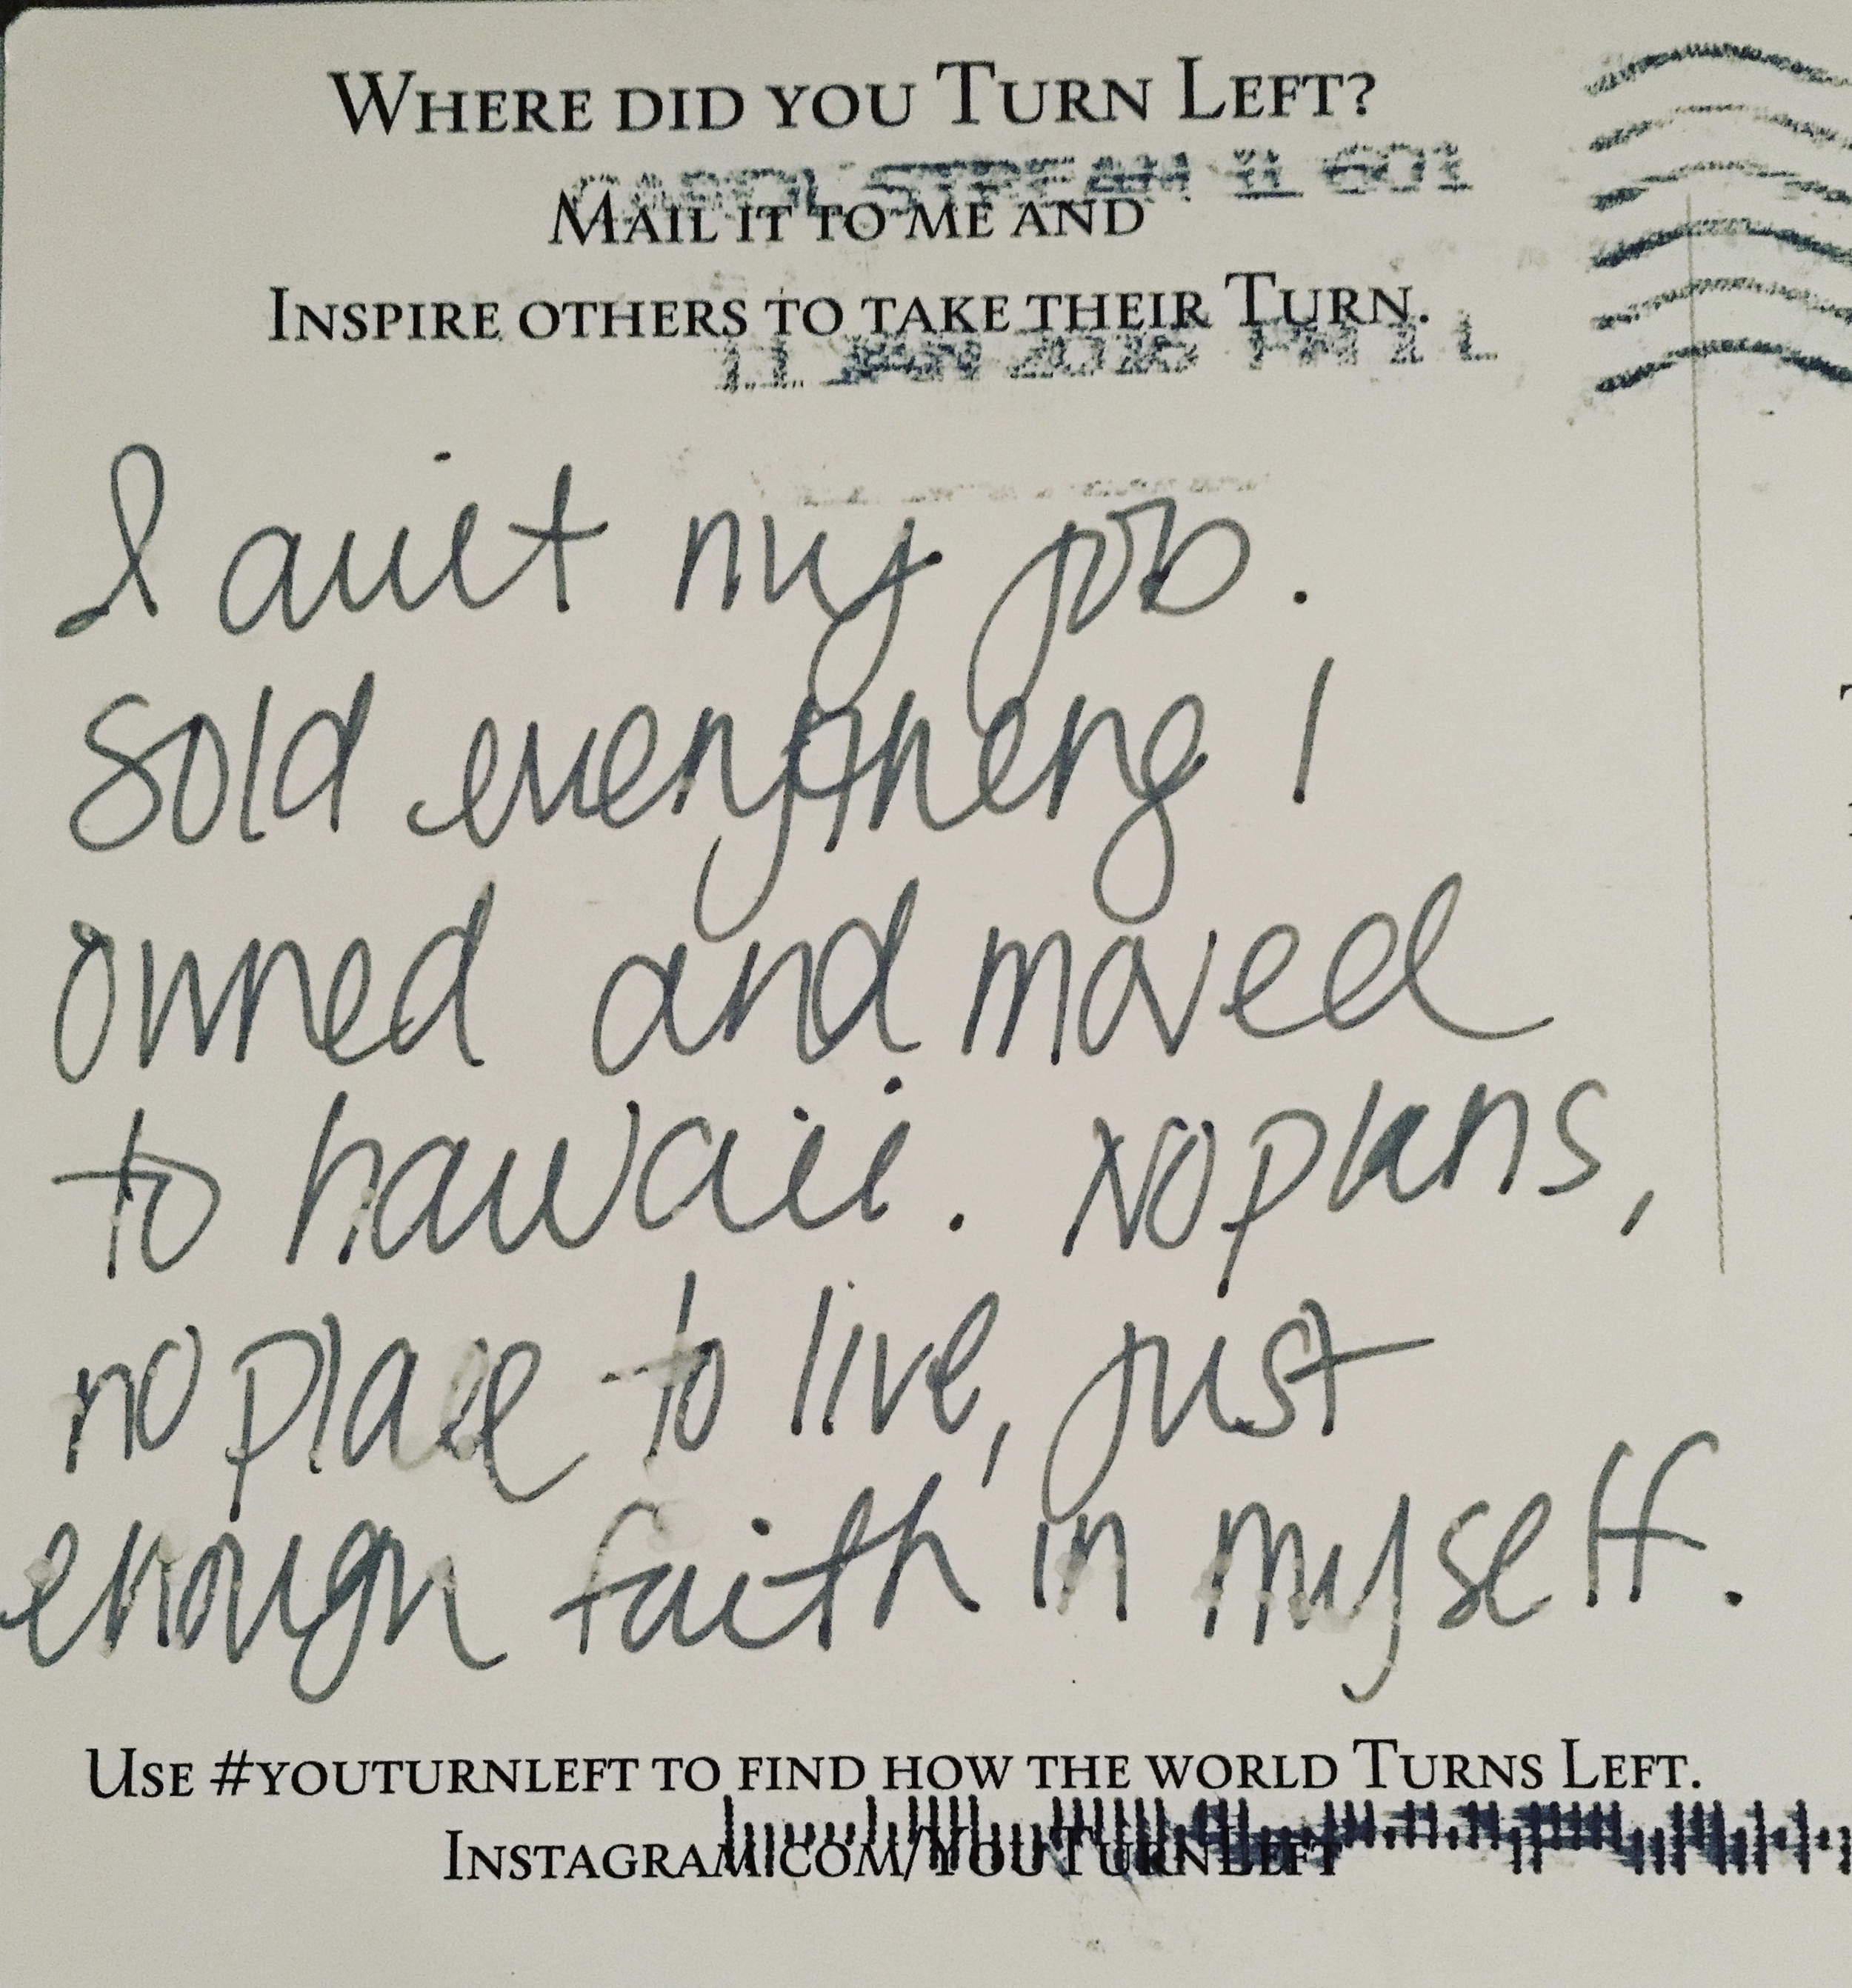 WHERE DID YOU TURN LEFT?
CAROL STREAM IL 601
MAIL IT TO ME AND
INSPIRE OTHERS TO TAKE THEIR TURN.
11 JAN 2016 PM 1 L
I quit my job.
Sold everything I
owned and moved
to hawaii. No plans,
no place to live, just
enough faith in myself.
USE #YOUTURNLEFT TO FIND HOW THE WORLD TURNS LEFT.
INSTAGRAM.COM/YOUTURNLEFT